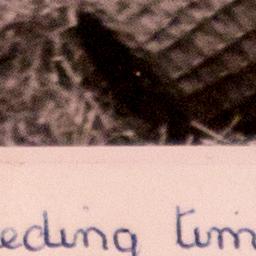 eding tim